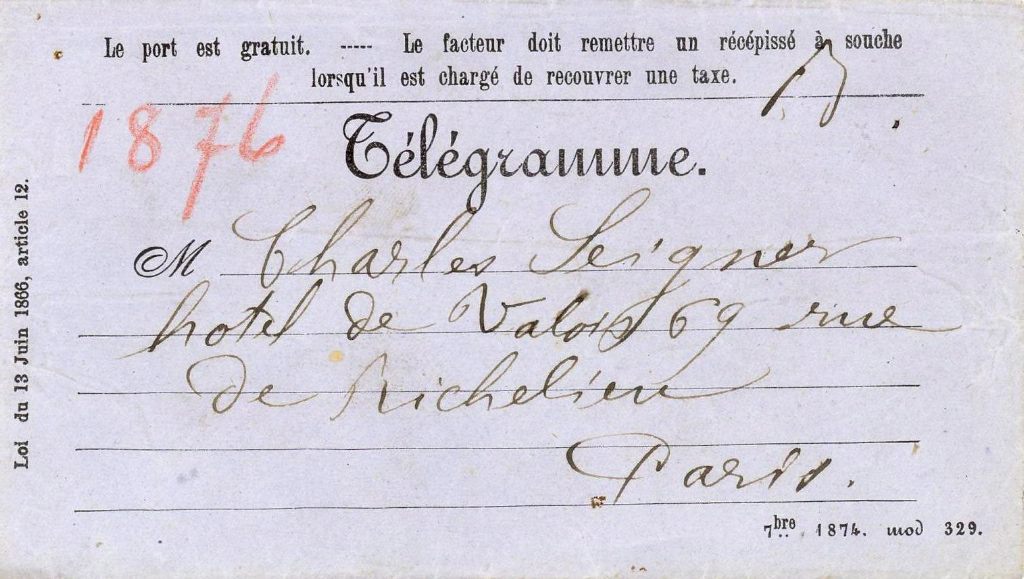 Le port est gratuit. ----- Le facteur doit remettre un récépissé à souche
lorsqu'il est chargé de recouvrer une taxe.
1876
Télégramme.
M Charles Seigner
hotel de Valois 69 rue
de Richelieu
Paris.
7bre 1874. mod 329.
Loi du 13 Juin 1866, article 12.